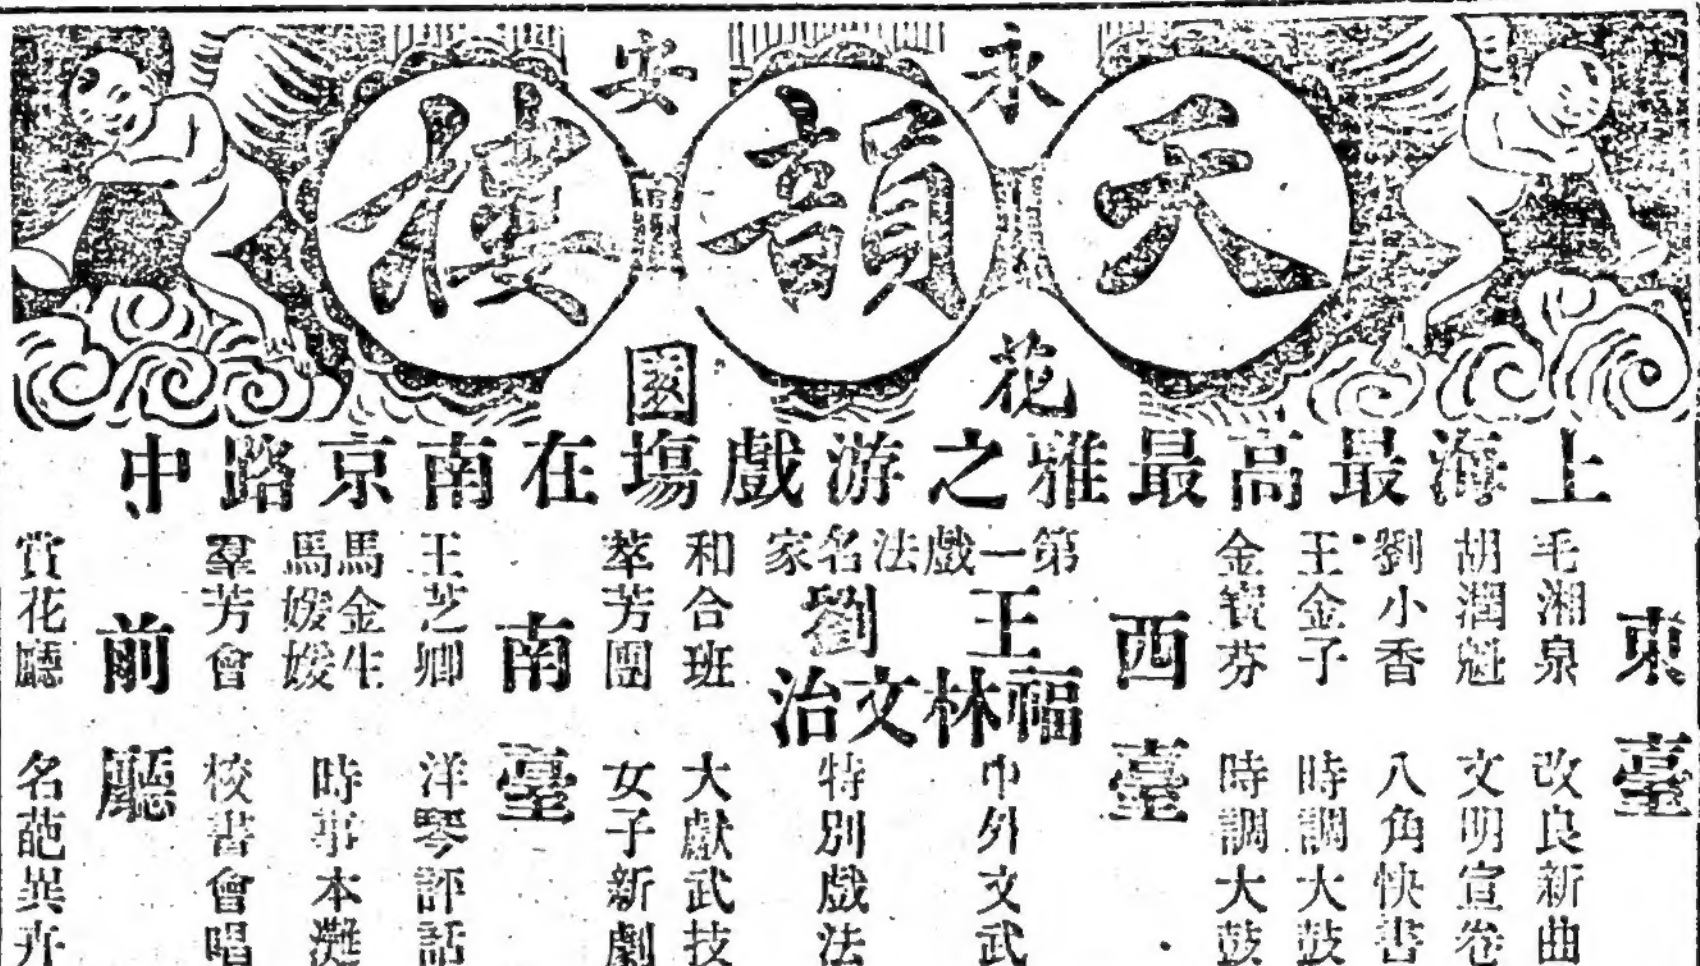 永安
天韻樓
花園
上海最高最雅之游戲塲在南京路中
東臺
毛湘泉 改良新曲
胡潤魁 文明宣卷
劉小香 八角快書
王金子 時調大鼓
金寶芬 時調大鼓
西臺
第一戲法名家
王福林 中外文武
劉文治 特別戲法
和合班 大獻武技
萃芳團 女子新劇
南臺
王芝卿 洋琴評話
馬金生
馬媛媛
時事本灘
羣芳會 校書會唱
前廳
賞花廳 名葩異卉